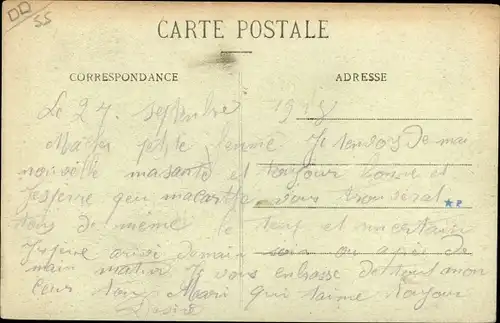 DD
55
CARTE POSTALE
CORRESPONDANCE
ADRESSE
Le 27 septembre 1918
Ma petite femme Je tenvois de mai
nouvelle ma santé et toujour bonne et
Jesperre que ma carte vous trouveras
tous de même le temp et incertain
Jespere arivé demain soir ou après de
main matin Je vous enbrasse de tout mon
Ceur ton Mari qui taime toujour
Desiré